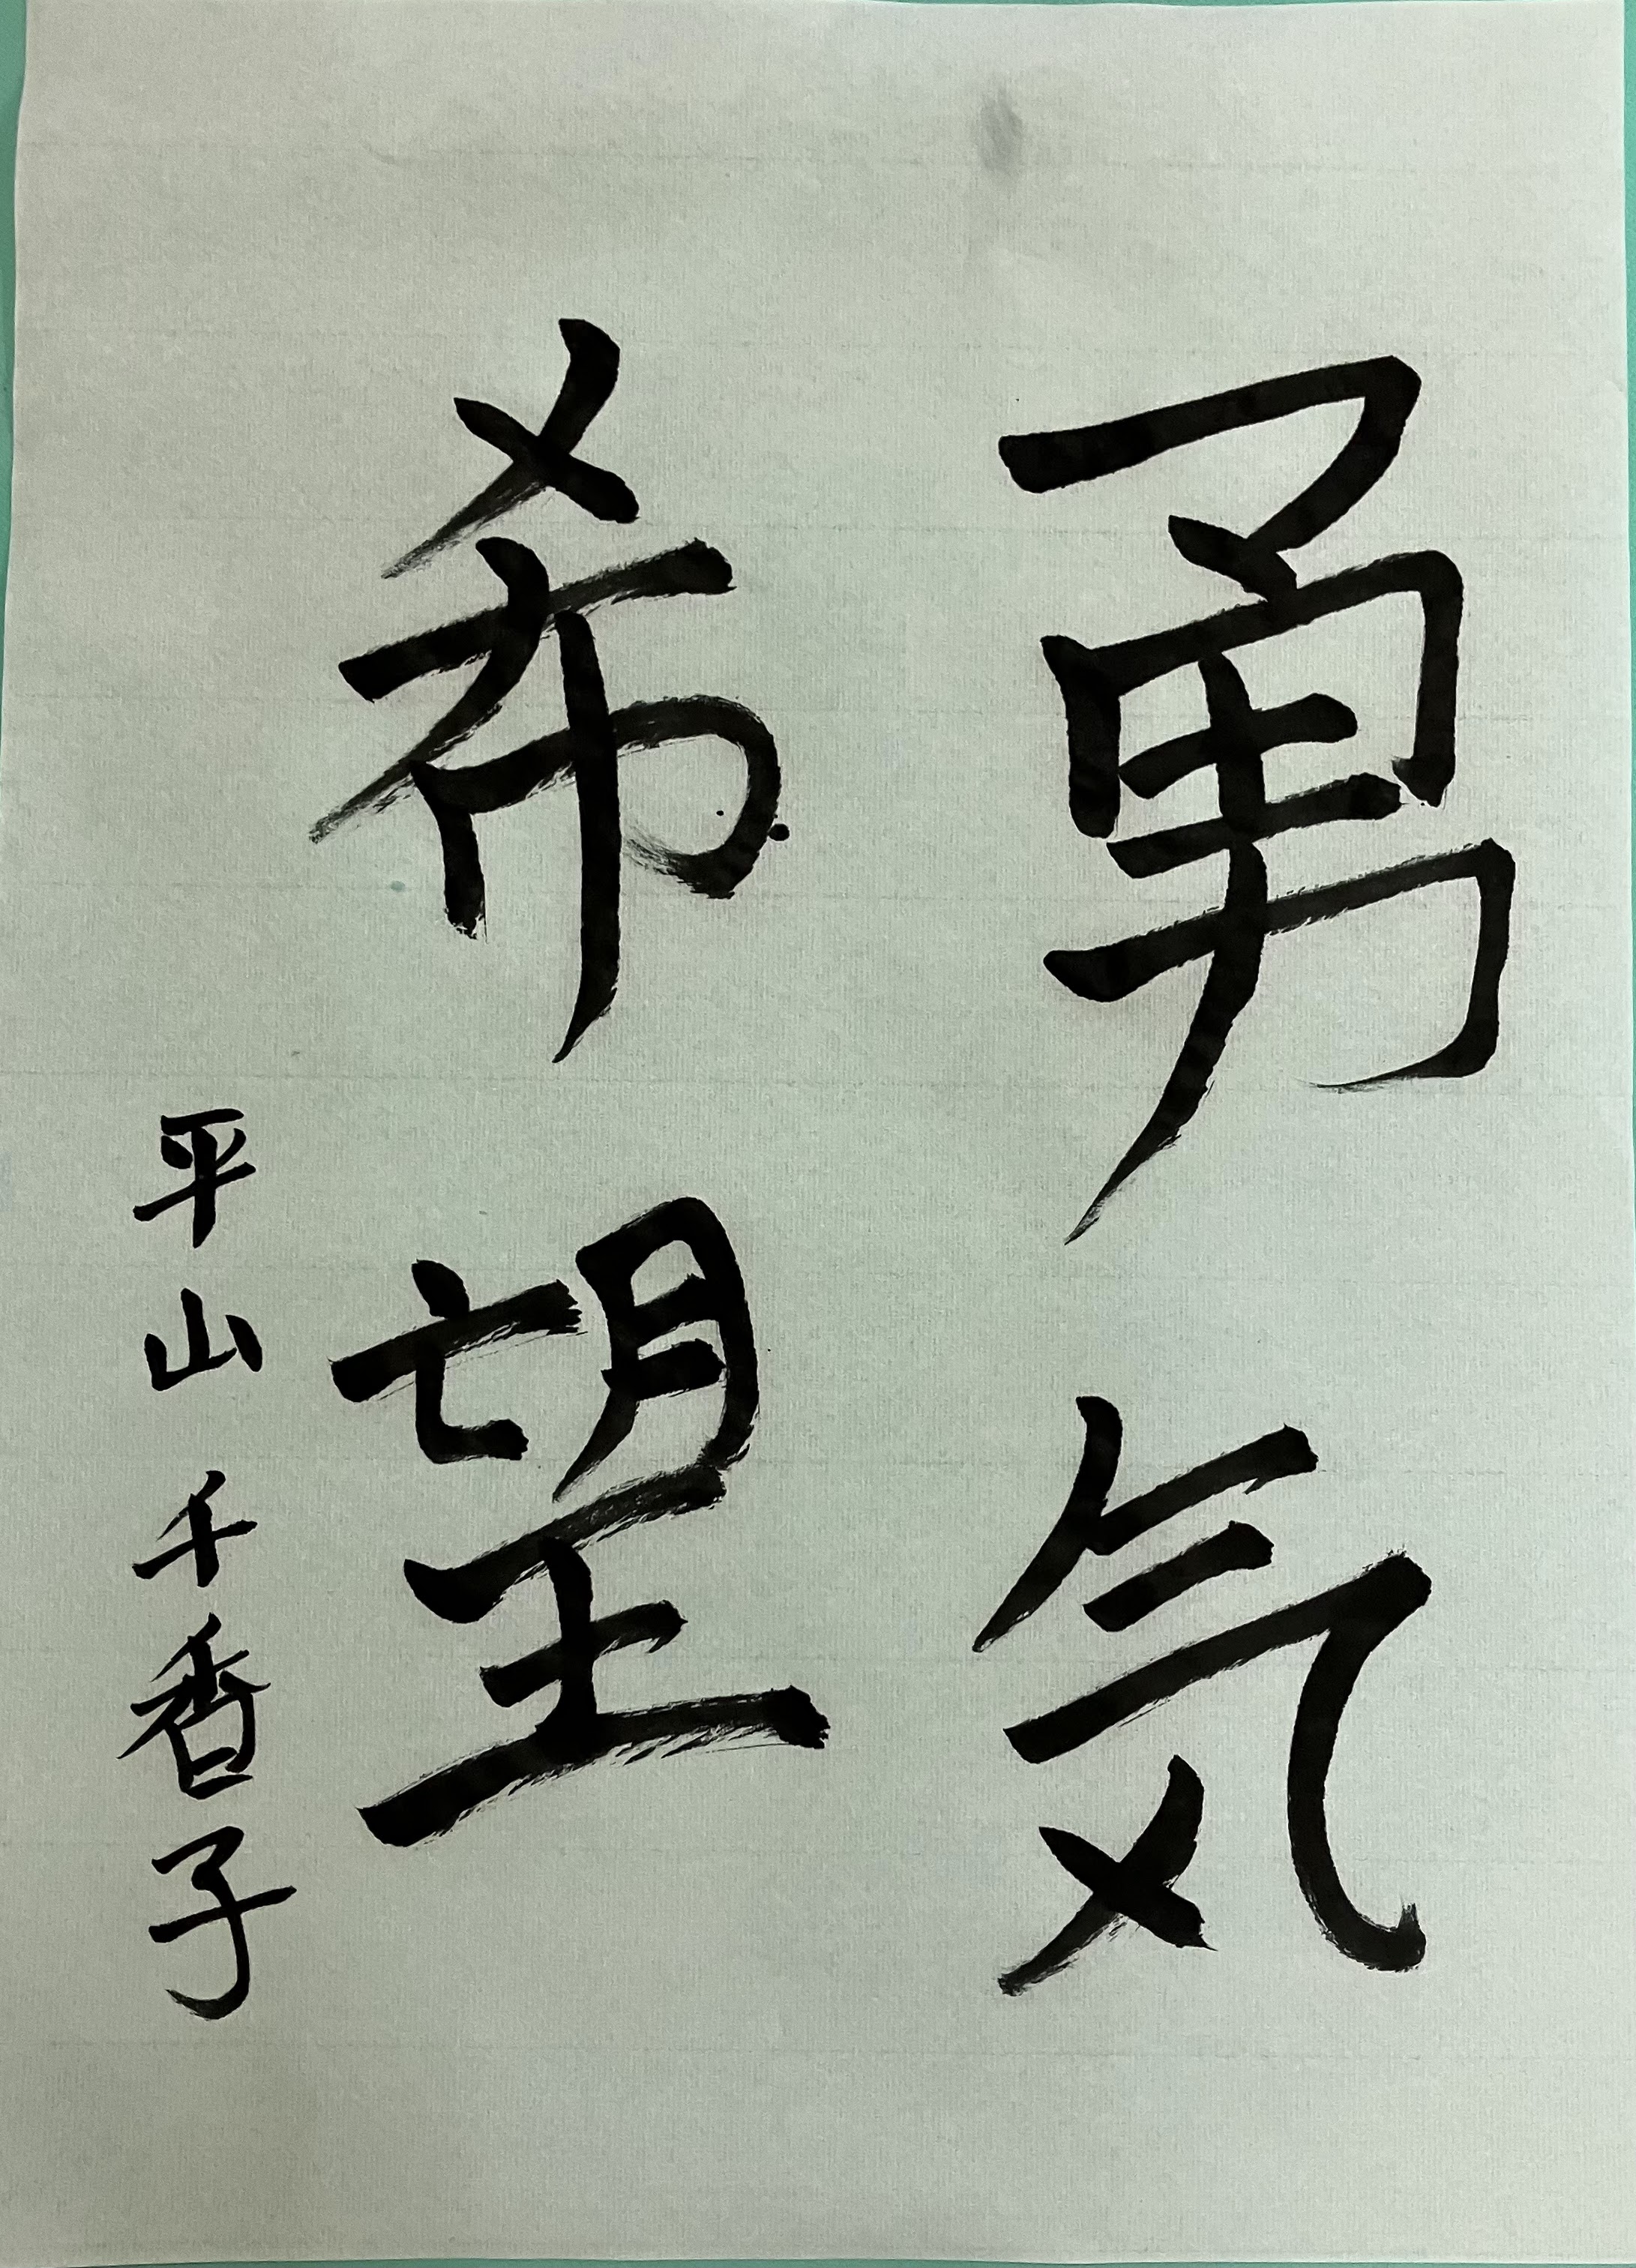 勇気
希望
平山千香子